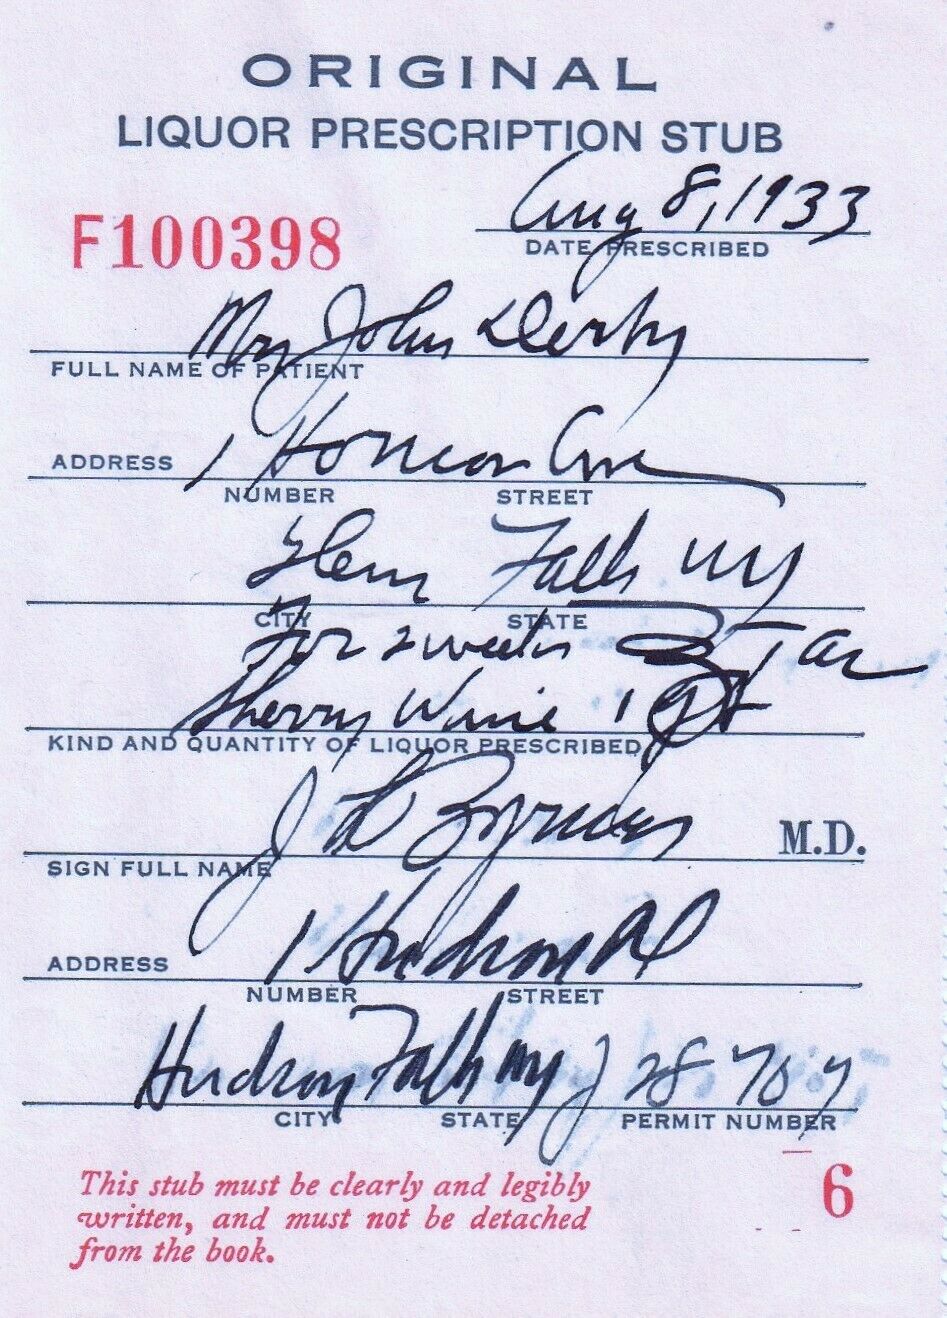 ORIGINAL
LIQUOR PRESCRIPTION STUB
F100398
Aug 8, 1933
DATE PRESCRIBED
John Derby
FULL NAME OF PATIENT
ADDRESS 1 Horicon Ave
NUMBER STREET
Glens Falls NY
CITY STATE
For 2 weeks
Sherry Wine 1 qt
KIND AND QUANTITY OF LIQUOR PRESCRIBED
J L Byrnes M.D.
SIGN FULL NAME
ADDRESS 1 Hudson
NUMBER STREET
Hudson Falls NY J 28
CITY STATE PERMIT NUMBER
This stub must be clearly and legibly
written, and must not be detached
from the book.
6